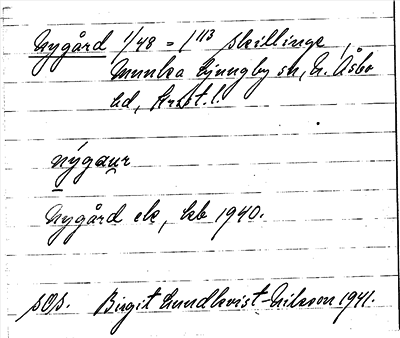 Nygård 1/48 = 1 113 skillinge,
Munka Ljungby sn, N. Åsbo
hd, Krist. l.
nýgaur
Nygård ek, kb 1940.
sOs. Birgit Lundkvist-Nilsson 1941.